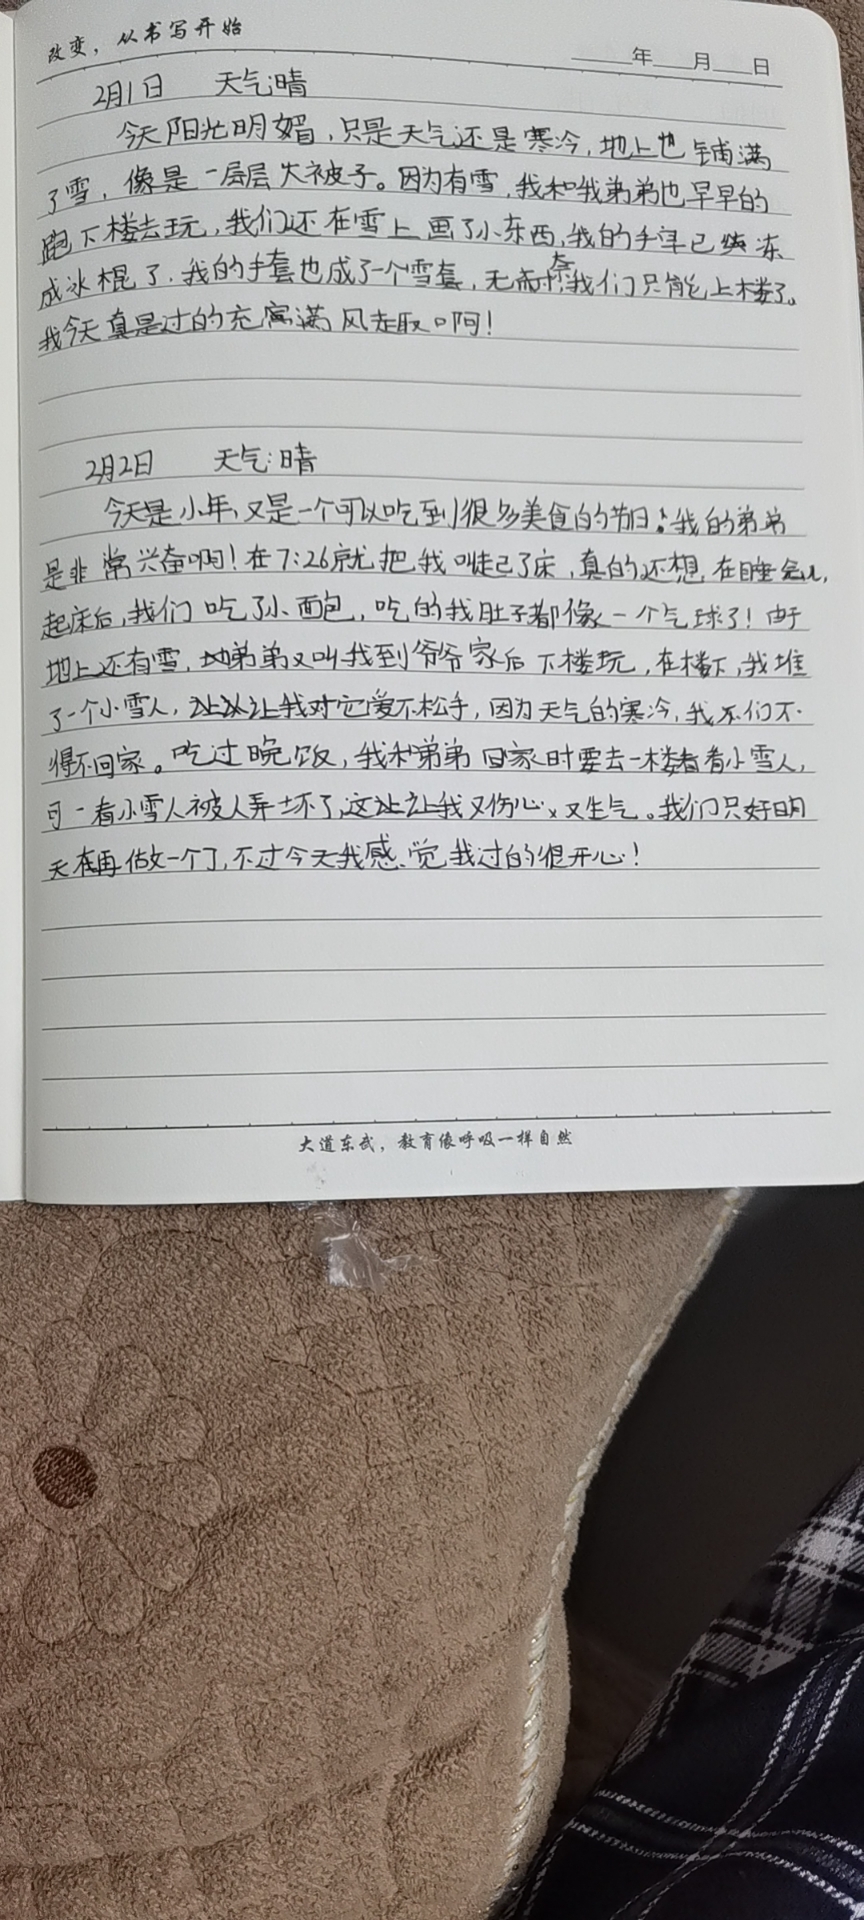 改变，从书写开始
年 月 日
2月1日 天气:晴
今天阳光明媚，只是天气还是寒冷，地上也铺满
了雪，像是一层层大被子。因为有雪，我和我弟弟也早早的
跑下楼去玩，我们还在雪上画了小东西，我的手早已冻
成冰棍了，我的手套也成了一个雪套，无奈，我们只能上楼了。
我今天真是过的充富满风走取啊！
2月2日 天气:晴
今天是小年，又是一个可以吃到很多美食的节日！我的弟弟
是非常兴奋啊！在7:26就把我叫起了床，真的还想在睡会儿，
起床后，我们吃了小面包，吃的我肚子都像一个气球了！由于
地上还有雪，弟弟又叫我到爷爷家后下楼玩，在楼下，我堆
了一个小雪人，让我对它爱不松手，因为天气的寒冷，我们不
得不回家。吃过晚饭，我和弟弟回家时要去一楼看看小雪人，
可一看小雪人被人弄坏了，这让我又伤心，又生气。我们只好明
天再做一个了，不过今天我感觉我过的很开心！
大道东武，教育像呼吸一样自然